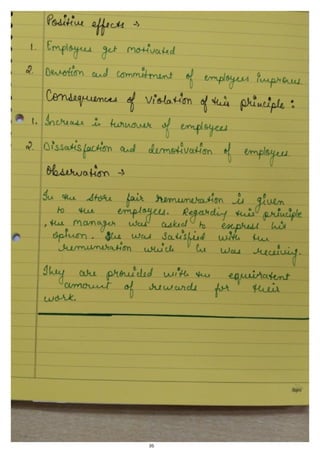 Positive effects →
1. Employees get motivated
2. Devotion and commitment of employees improves.
Consequences of Violation of this principle :
1. Increase in turnover of employees
2. Dissatisfaction and demotivation of employees.
Observation →
In the store fair remuneration is given
to the employees. Regarding this principle
, the manager was asked to express his
opinion. She was Satisfied with the
remuneration which he was receiving.
They are provided with the equivalent
amount of rewards for their
work.
35